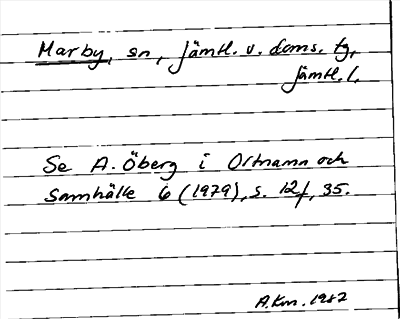 Marby, sn, Jämtl. v. doms. tg,
Jämtl. l.
Se A. Öberg i Ortnamn och
Samhälle 6 (1979), s. 12f, 35.
A.Km. 1982